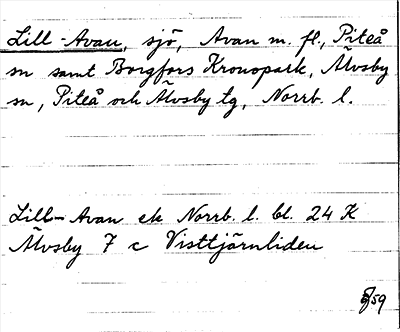 Lill-Avan, sjö, Avan m. fl., Piteå
sn samt Borgfors Kronopark, Älvsby
sn, Piteå och Älvsby tg, Norrb. l.
Lill-Avan ek Norrb. l. bl. 24 K
Älvsby 7 c Visttjärnliden
/59